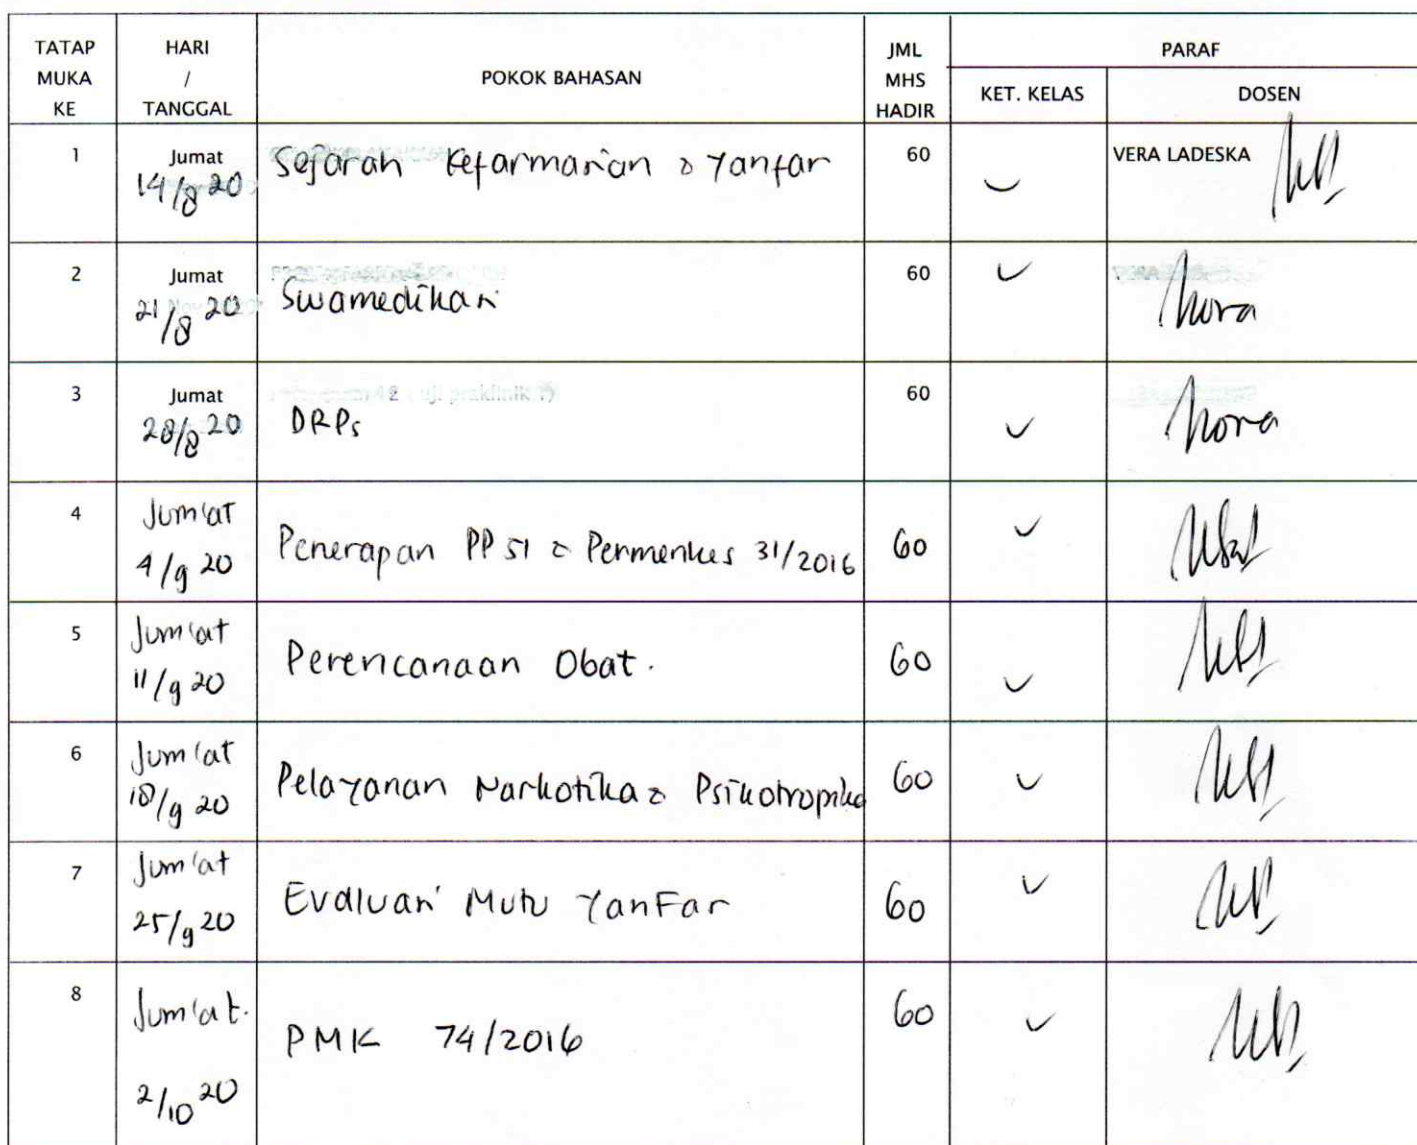 TATAP MUKA KE HARI / TANGGAL POKOK BAHASAN JML MHS HADIR PARAF
KET. KELAS DOSEN
1 Jumat 14/8 20 Sejarah Kefarmasian & Yanfar 60 VERA LADESKA
2 Jumat 21/8 20 Swamedikasi 60
3 Jumat 28/8 20 DRPs 60
uji praklinik
4 Jum'at 4/9 20 Penerapan PP 51 & Permenkes 31/2016 60
5 Jum'at 11/9 20 Perencanaan Obat. 60
6 Jum'at 18/9 20 Pelayanan Narkotika & Psikotropika 60
7 Jum'at 25/9 20 Evaluasi Mutu YanFar 60
8 Jum'at. 2/10 20 PMK 74/2016 60